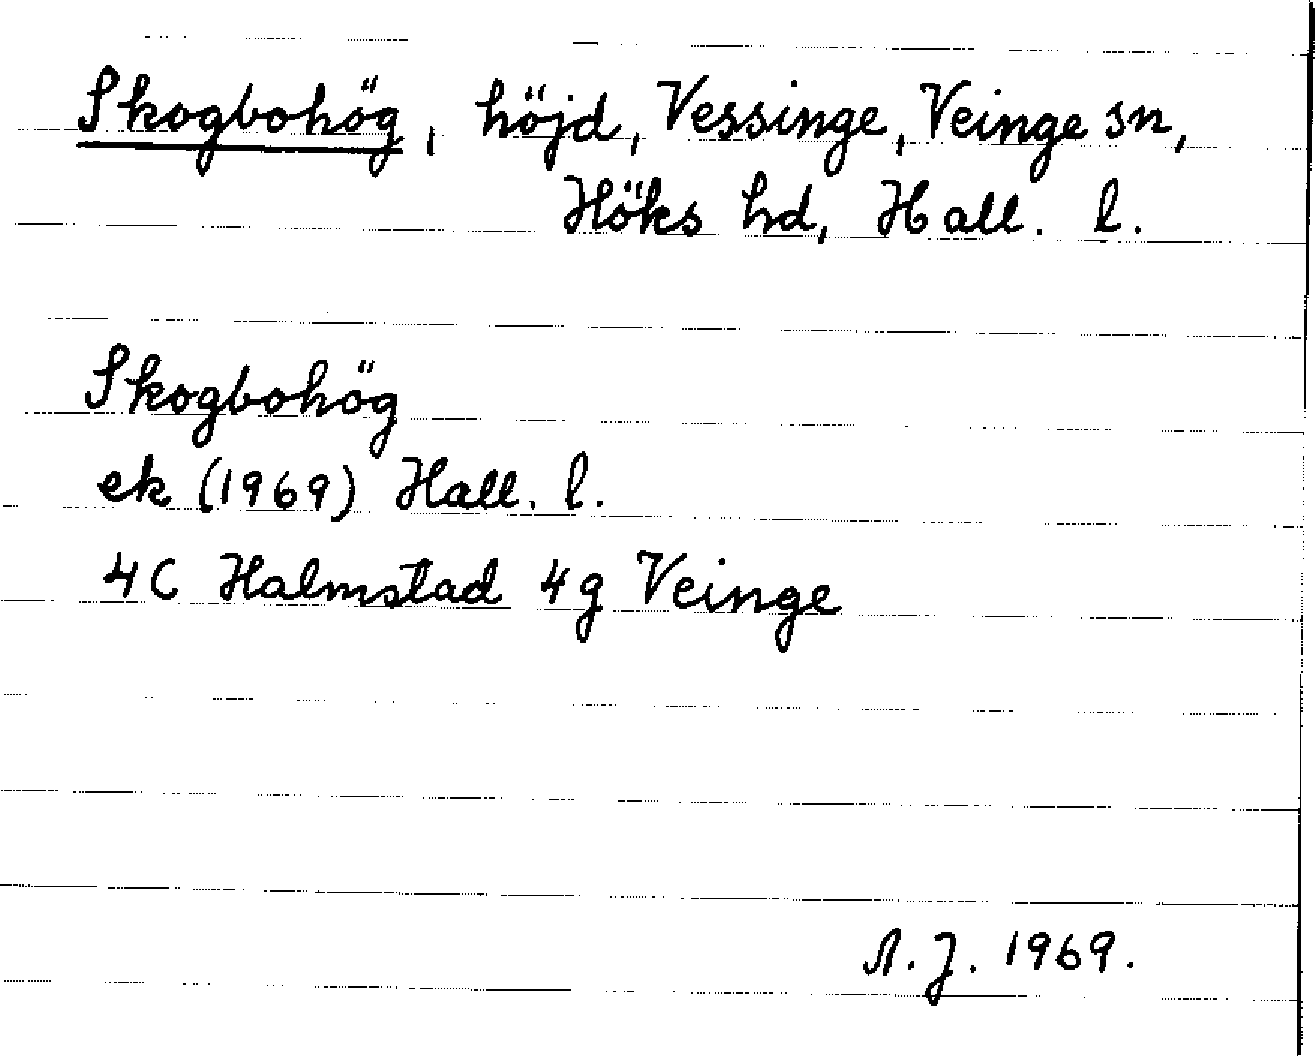 Skogbohög, höjd, Vessinge, Veinge sn,
Höks hd, Hall. l.
Skogbohög
ek (1969) Hall. l.
4C Halmstad 4g Veinge
A.J. 1969.